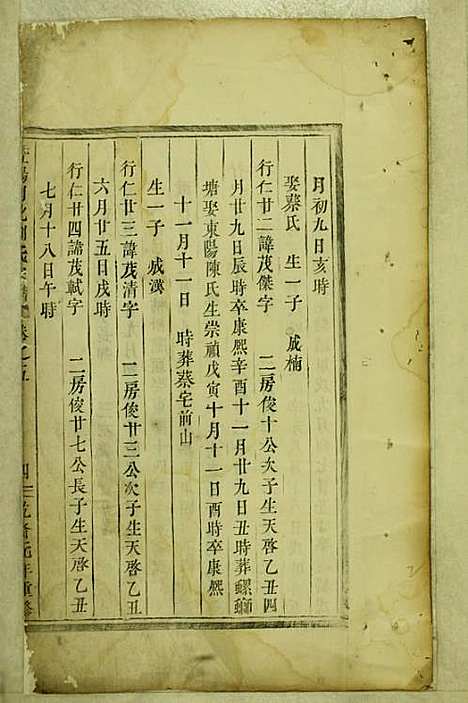 月初九日亥時
娶蔡氏 生一子 威楠
行仁廿二諱茂傑字 二房俊十公次子生天啓乙丑四
月廿九日辰時卒康熙辛酉十一月廿九日丑時葬螺螄
塘娶東陽陳氏生崇禎戊寅十月十一日酉時卒康熙
十一月十一日 時葬蔡宅前山
生一子 威漢
行仁廿三諱茂清字 二房俊廿三公次子生天啓乙丑
六月廿五日戌時
行仁廿四諱茂軾字 二房俊廿七公長子生天啓乙丑
七月十八日午時
卷之五
元年重修